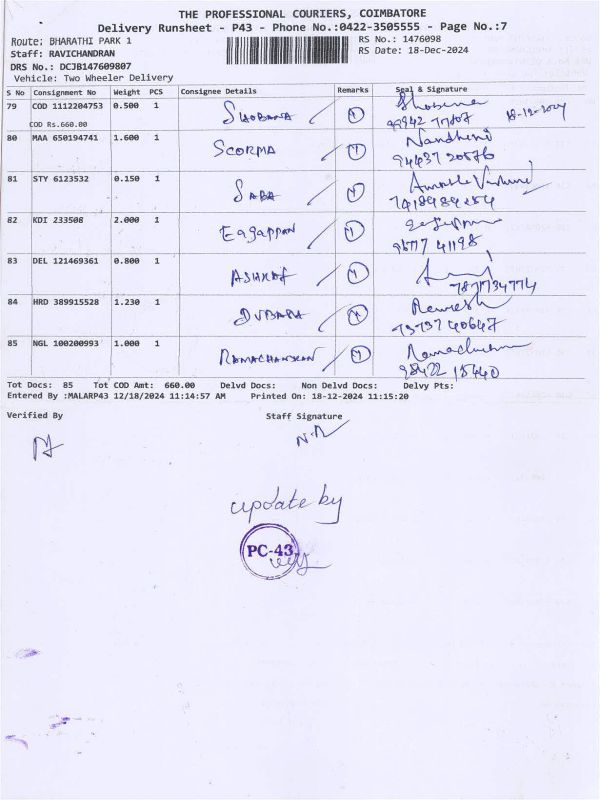 THE PROFESSIONAL COURIERS, COIMBATORE
Delivery Runsheet - P43 - Phone No.:0422-3505555 - Page No.:7
Route: BHARATHI PARK 1
RS No.: 1476098
Staff: RAVICHANDRAN
RS Date: 18-Dec-2024
DRS No.: DCJB147609807
Vehicle: Two Wheeler Delivery
S No Consignment No Weight PCS Consignee Details Remarks Seal & Signature
79 COD 1112204753 0.500 1 SHOBANA
COD Rs.660.00
80 MAA 650194741 1.600 1 SCORMA Nandhini
94437 20576
81 STY 6123532 0.150 1 SABA
82 KDI 233508 2.000 1 Eagappan
83 DEL 121469361 0.800 1 ASHRAF
7871734774
84 HRD 389915528 1.230 1 DUBARA Ramesh
73737 40647
85 NGL 100200993 1.000 1 RAMACHANDRAN
98422 15440
Tot Docs: 85 Tot COD Amt: 660.00 Delvd Docs: Non Delvd Docs: Delvy Pts:
Entered By :MALARP43 12/18/2024 11:14:57 AM Printed On: 18-12-2024 11:15:20
Verified By Staff Signature
update by
PC-43